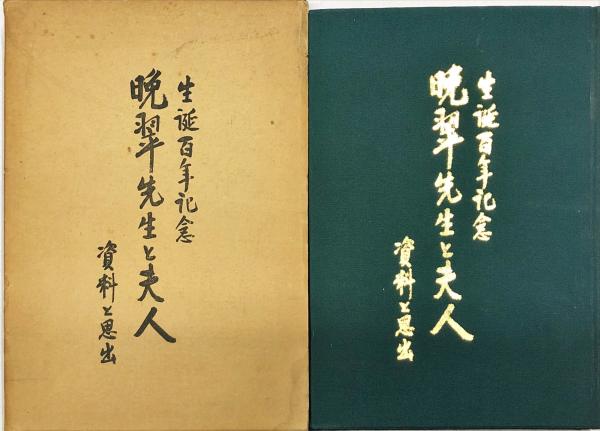 生誕百年記念
晩翠先生と夫人
資料と思出
生誕百年記念
晩翠先生と夫人
資料と思出